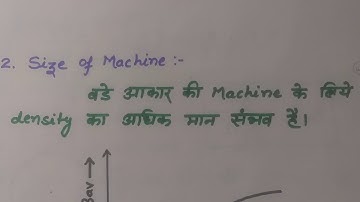 2. Size of Machine :-
बडे आकार की Machine के लिये
density का अधिक मान संभव है।
Bav →